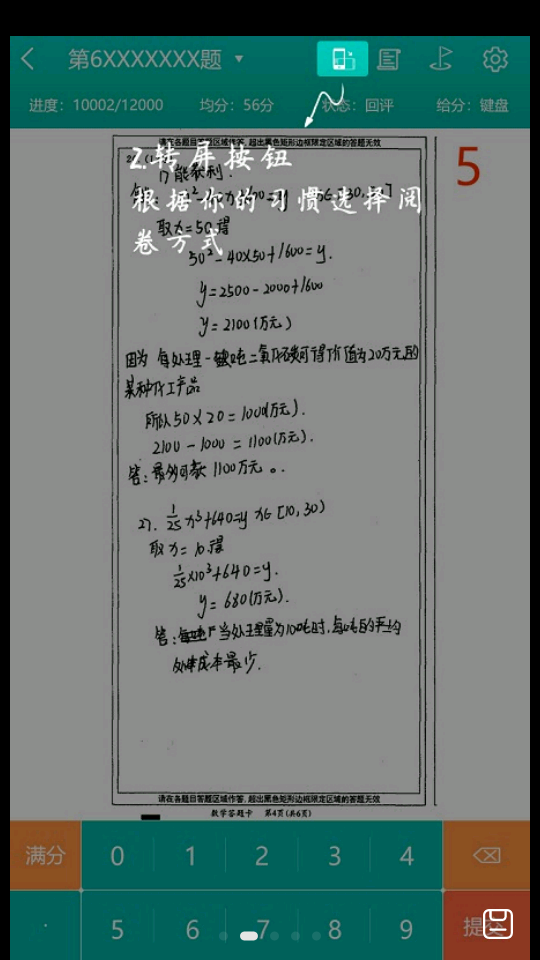 第6XXXXXXX题
进度：10002/12000 均分：56分 状态：回评 给分：键盘
请在各题目答题区域作答，超出黑色矩形边框限定区域的答题无效
5
2.转屏按钮
根据你的习惯选择阅
卷方式
不能获利.
取x=50.得
50²-40×50+1600=y.
y=2500-2000+1600
y=2100(万元)
因为 每处理一吨二氧化碳可得价值为20万元的
某种化工产品
所以50×20=1000(万元).
2100-1000=1100(万元).
答：最多可亏 1100万元。
27. 1/25 x³+640=y x∈[10,30)
取x=10.得
1/25×10³+640=y.
y=680(万元).
答：当处理量为10吨时,每吨的平均
处理成本最少.
请在各题目答题区域作答，超出黑色矩形边框限定区域的答题无效
数学答题卡 第4页(共6页)
满分 0 1 2 3 4
. 5 6 7 8 9 提交